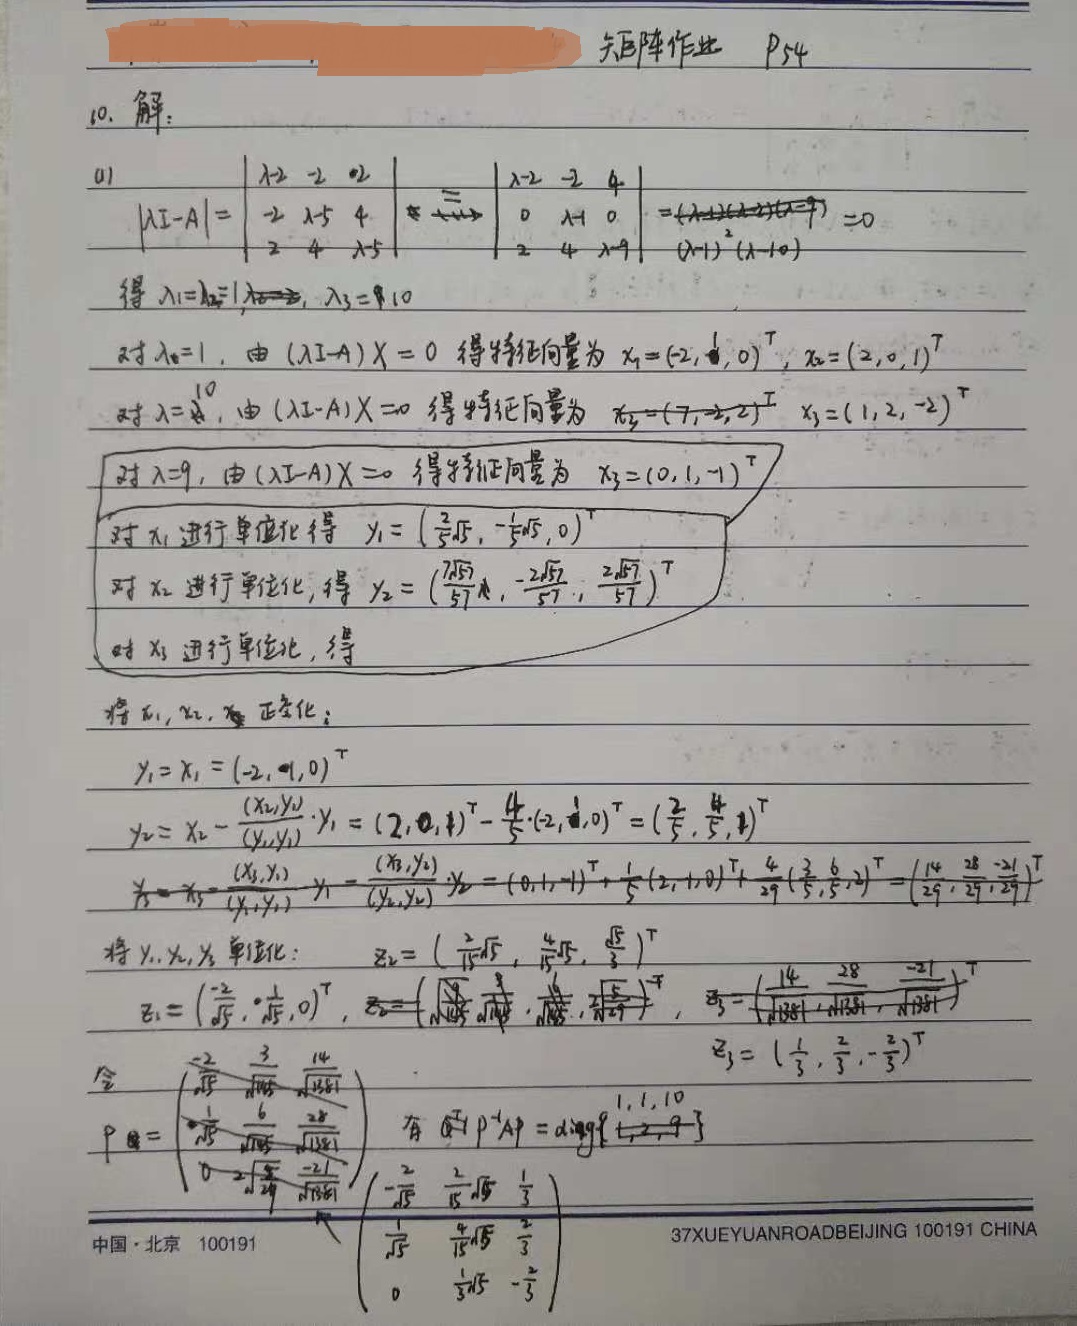 矩阵作业 P54
10. 解:
(1) |λI-A| = | λ-2 -2 2 | = | λ-2 -2 4 |
| -2 λ-5 4 | | 0 λ-1 0 | = (λ-1)(λ-2)(λ-9) = 0
| 2 4 λ-5 | | 2 4 λ-9 | (λ-1)²(λ-10)
得 λ1=λ2=1, λ3=10
对 λ=1, 由 (λI-A)X=0 得特征向量为 x1=(-2,1,0)^T, x2=(2,0,1)^T
对 λ=10, 由 (λI-A)X=0 得特征向量为 x2=(7,-2,2)^T x3=(1,2,-2)^T
对 λ=9, 由 (λI-A)X=0 得特征向量为 x3=(0,1,-1)^T
对 x1 进行单位化得 y1=(2/5√5, -1/5√5, 0)^T
对 x2 进行单位化, 得 y2=(7√57/57, -2√57/57, 2√57/57)^T
对 x3 进行单位化, 得
将 x1, x2, 正交化:
y1=x1=(-2,1,0)^T
y2=x2-(x2,y1)/(y1,y1)·y1=(2,0,1)^T-4/5·(-2,1,0)^T=(2/5,4/5,1)^T
y3=x3-(x3,y1)/(y1,y1) y1-(x3,y2)/(y2,y2)·y2=(0,1,-1)^T+1/5(2,-1,0)^T+4/29(3/5,6/5,2)^T=(14/29,28/29,-21/29)^T
将 y1,y2,y3 单位化: z2=(2/15√5, 4/15√5, √5/3)^T
z1=(-2/√5, 1/√5, 0)^T, z2= , z3=(14/√1381, 28/√1381, -21/√1381)^T
z3=(1/3, 2/3, -2/3)^T
令
-2/√5 3/√145 14/√1381
P = 1/√5 6/√145 28/√1381 有 P^-1AP=diag{1,1,10}
0 -21/√1381 1,2,9
-2/√5 2/15√5 1/3
1/√5 4/15√5 2/3
0 1/3√5 -2/3
中国·北京 100191 37XUEYUANROADBEIJING 100191 CHINA